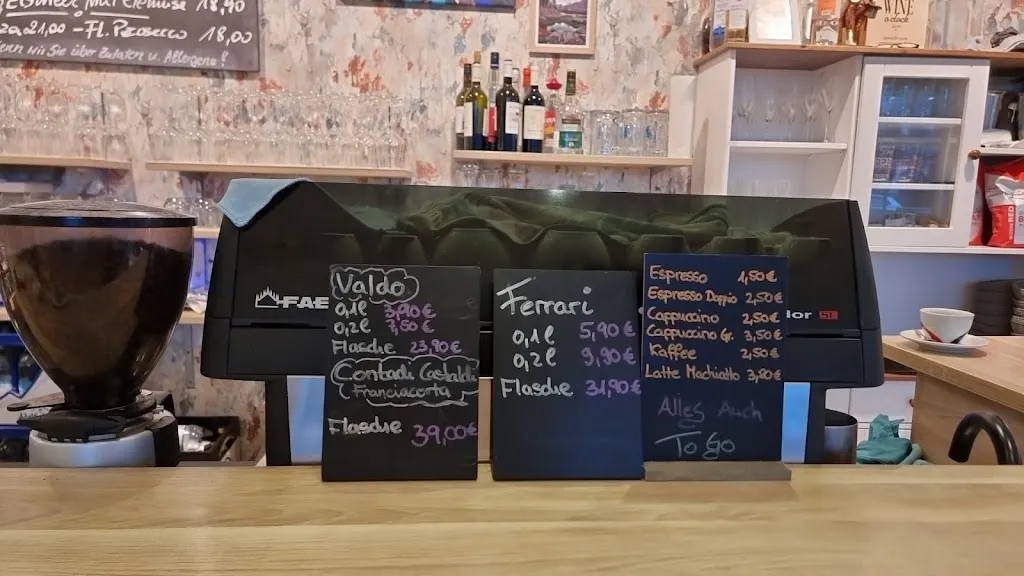 mit Gemüse 18,40
Fl. Prosecco 18,00
Sie über Zutaten u. Allergene!
WINE
o'clock
FAE
SE
Valdo
0,1l 3,90€
0,2l 7,50€
Flasche 23,90€
Contadi Castaldi
Franciacorta
Flasche 39,00€
Ferrari
0,1l 5,90€
0,2l 9,90€
Flasche 31,90€
Espresso 1,50€
Espresso Doppio 2,50€
Cappuccino 2,50€
Cappuccino Gr. 3,50€
Kaffee 2,50€
Latte Machiatto 3,20€
Alles Auch
To go